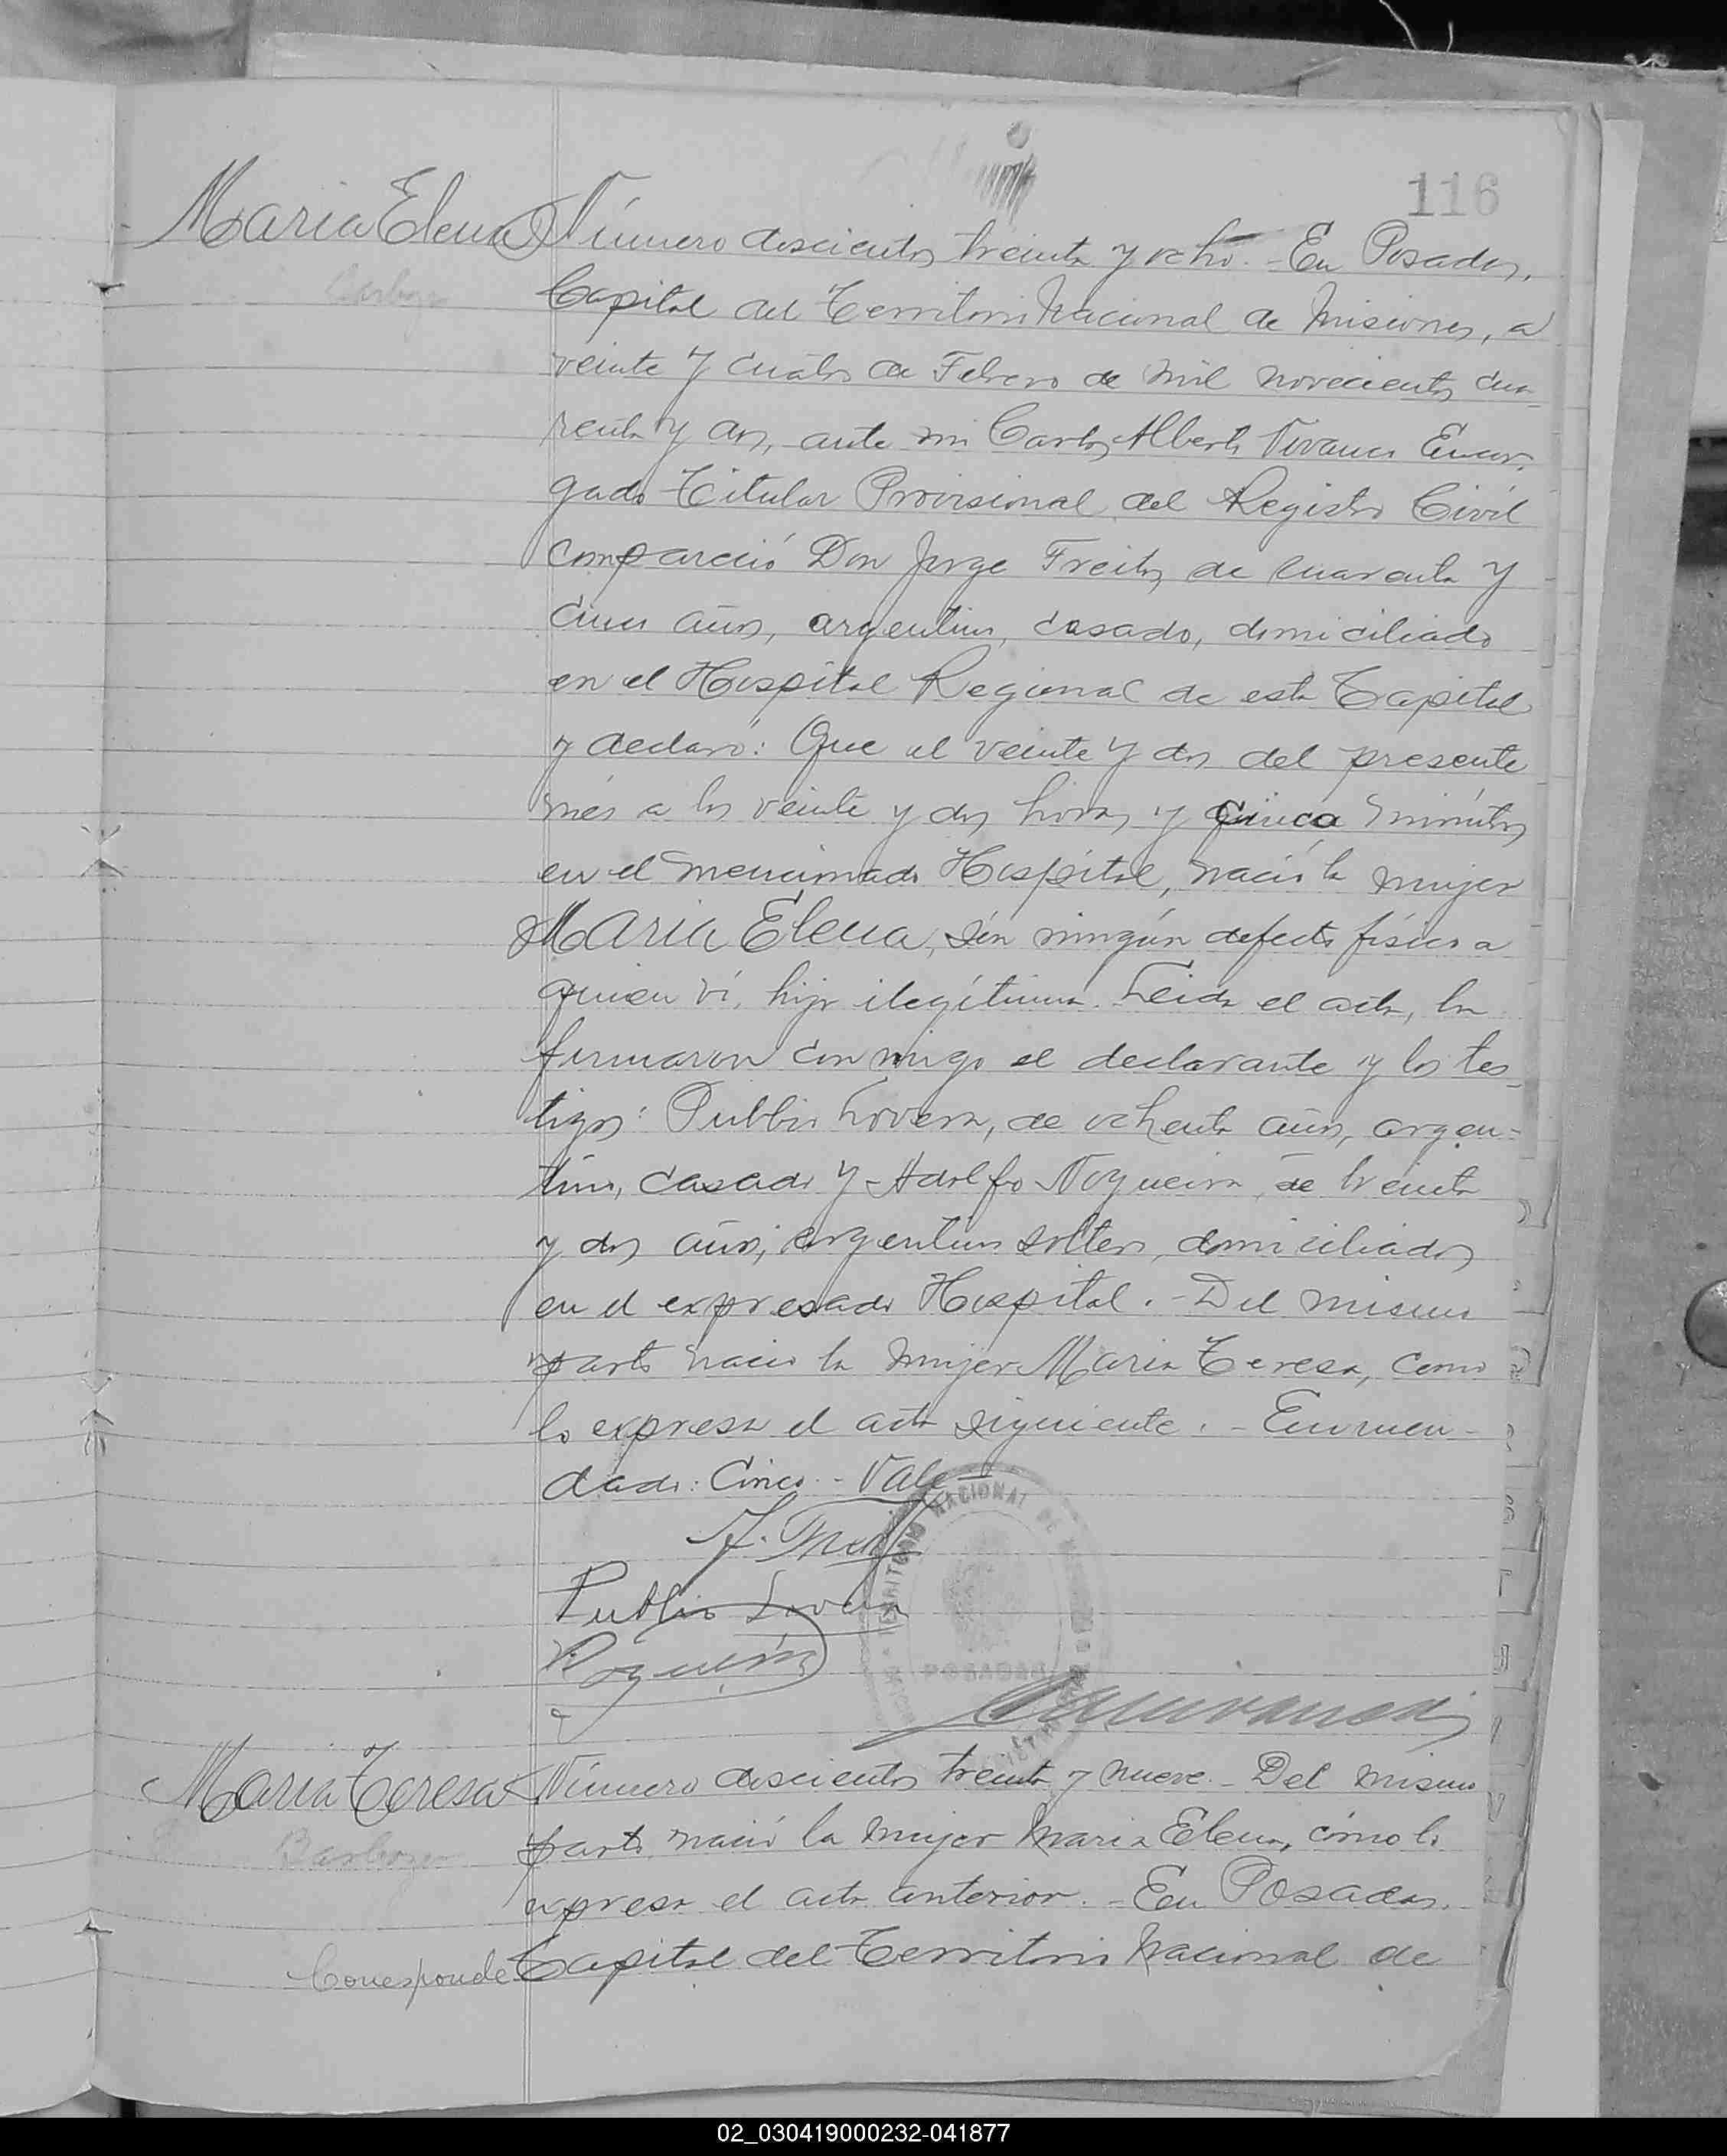 116
Maria Elena
Número doscientos treinta y ocho.- En Posadas,
Capital del Territorio Nacional de Misiones, a
veinte y cuatro de Febrero de mil novecientos cua-
renta y dos, ante mi Carlos Alberto Vivanco Encar-
gado Titular Provisional del Registro Civil
compareció Don Jorge Freitas, de cuarenta y
cinco años, argentino, casado, domiciliado
en el Hospital Regional de esta Capital
y declaró: Que el veinte y dos del presente
mes a las veinte y dos horas y cinco minutos
en el mencionado Hospital, nació la mujer
Maria Elena, sin ningún defecto físico a
quien ví, hija ilegítima. Leida el acta, la
firmaron conmigo el declarante y los tes-
tigos: Publio Lovera, de ochenta años, argen-
tino, casado y Adolfo Nogueira, de treinta
y dos años, argentino soltero, domiciliados
en el expresado Hospital.- Del mismo
parto nació la mujer Maria Teresa, como
lo expresa el acta siguiente.- Enmen-
dado: Cinco.- Vale
Publio Lovera
Nogueira
TERRITORIO NACIONAL DE
POSADAS
Maria Teresa
Barboza
Número doscientos treinta y nueve.- Del mismo
parto nació la mujer Maria Elena, cómo lo
expresa el acta anterior.- En Posadas,
Corresponde
Capital del Territorio Nacional de
02_030419000232-041877